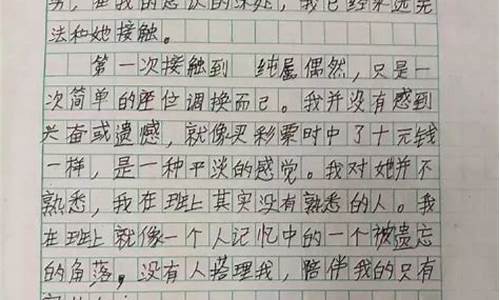 ，在我的意识的深处，我已经永远无
法和她接触。
第一次接触到 纯属偶然，只是一
次简单的座位调换而已。我并没有感到
兴奋或遗憾，就像买彩票时中了十元钱
一样，是一种平淡的感觉。我对她并不
熟悉，我在班上其实没有熟悉的人。我
在班上就像一个人记忆中的一个被遗忘
的角落。没有人搭理我，陪伴我的只有